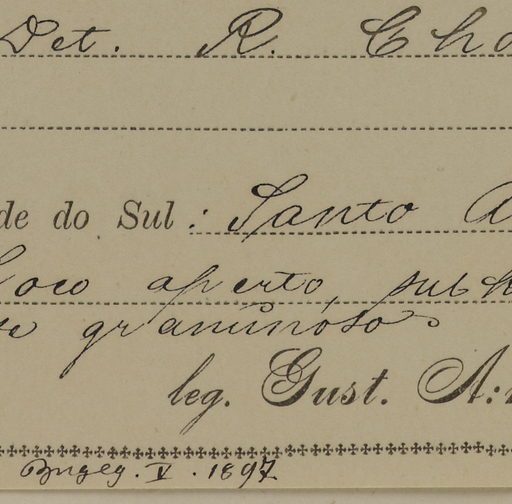 Det. R. Cho
de do Sul: Santo A
loco aperto, subh
graminoso
leg. Gust. A:
V. 1897